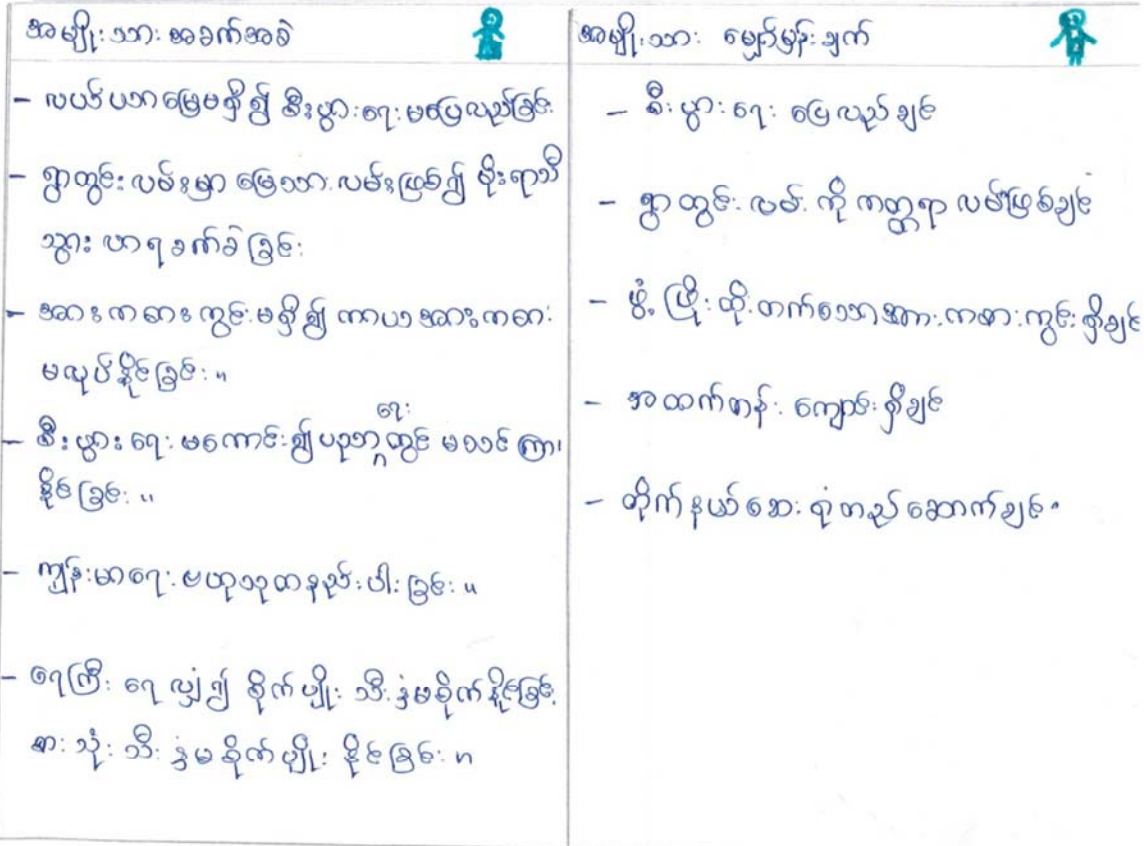 အမျိုးသား အခက်အခဲ
- လယ်ယာမြေမရှိ၍ စီးပွားရေး မပြေလည်ခြင်း
- ရွာတွင်း လမ်းမှာ မြေသား လမ်းဖြစ်၍ မိုးရာသီ
သွား လာ ရ ခက်ခဲ ခြင်း
- အားကစား ကွင်းမရှိ၍ ကာယ အားကစား
မလုပ်နိုင်ခြင်း။
- စီးပွားရေး မကောင်း၍ ပညာရေးတွင် မသင်ကြား
နိုင်ခြင်း။
- ကျန်းမာရေး ဗဟုသုတ နည်းပါး ခြင်း။
- ရေကြီး ရေလျှံ၍ စိုက်ပျိုး သီးနှံမစိုက်နိုင်ခြင်း
စား သုံး သီး နှံ မ စိုက်ပျိုး နိုင်ခြင်း။
အမျိုးသား မျှော်မှန်းချက်
- စီးပွားရေး ပြေလည်ချင်
- ရွာတွင်း လမ်း ကို ကတ္တရာ လမ်းဖြစ်ချင်
- ဖွံ့ဖြိုး တိုးတက်သော အားကစားကွင်း ရှိချင်
- အထက်တန်း ကျောင်း ရှိချင်
- တိုက်နယ်ဆေး ရုံတည်ဆောက်ချင်။